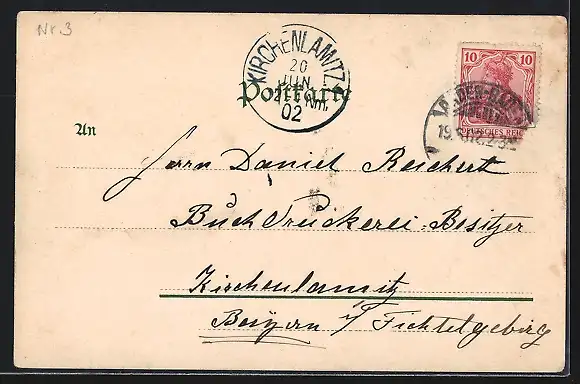 Nr. 3
KIRCHENLAMITZ
20
JUN.
Nm.
02
Postkarte
10 10
DEUTSCHES REICH
BADEN-BADEN
An
Herrn Daniel Reichert
Buchdruckerei-Besitzer
Kirchenlamitz
Bayern i/ Fichtelgebirg